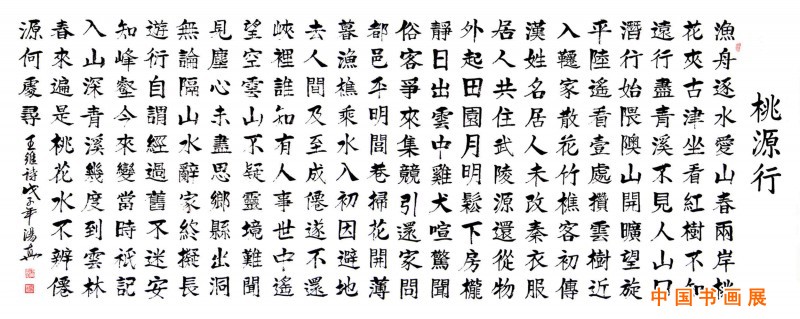 桃源行
漁舟逐水愛山春兩岸桃
花夾古津坐看紅樹不知
遠行盡青溪不見人山口
潛行始隈隩山開曠望旋
平陸遙看壹處攢雲樹近
入韆家散花竹樵客初傳
漢姓名居人未改秦衣服
居人共住武陵源還從物
外起田園月明鬆下房櫳
靜日出雲中雞犬喧驚聞
俗客爭來集競引還家問
都邑平明閭巷掃花開薄
暮漁樵乘水入初因避地
去人間及至成僊遂不還
峽裡誰知有人事世中遙
望空雲山不疑靈境難聞
見塵心未盡思鄉縣出洞
無論隔山水辭家終擬長
遊衍自謂經過舊不迷安
知峰壑今來變當時衹記
入山深青溪幾度到雲林
春來遍是桃花水不辨僊
源何處尋 王維詩戊子年湯
中国书画展